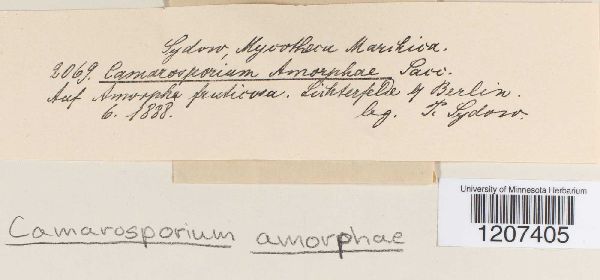 Sydow, Mycotheca Marchica.
2069. Camarosporium Amorphae Sacc.
Auf Amorpha fruticosa. Lichterfelde b/ Berlin.
6. 1888. leg. P. Sydow.
Camarosporium amorphae
University of Minnesota Herbarium
1207405